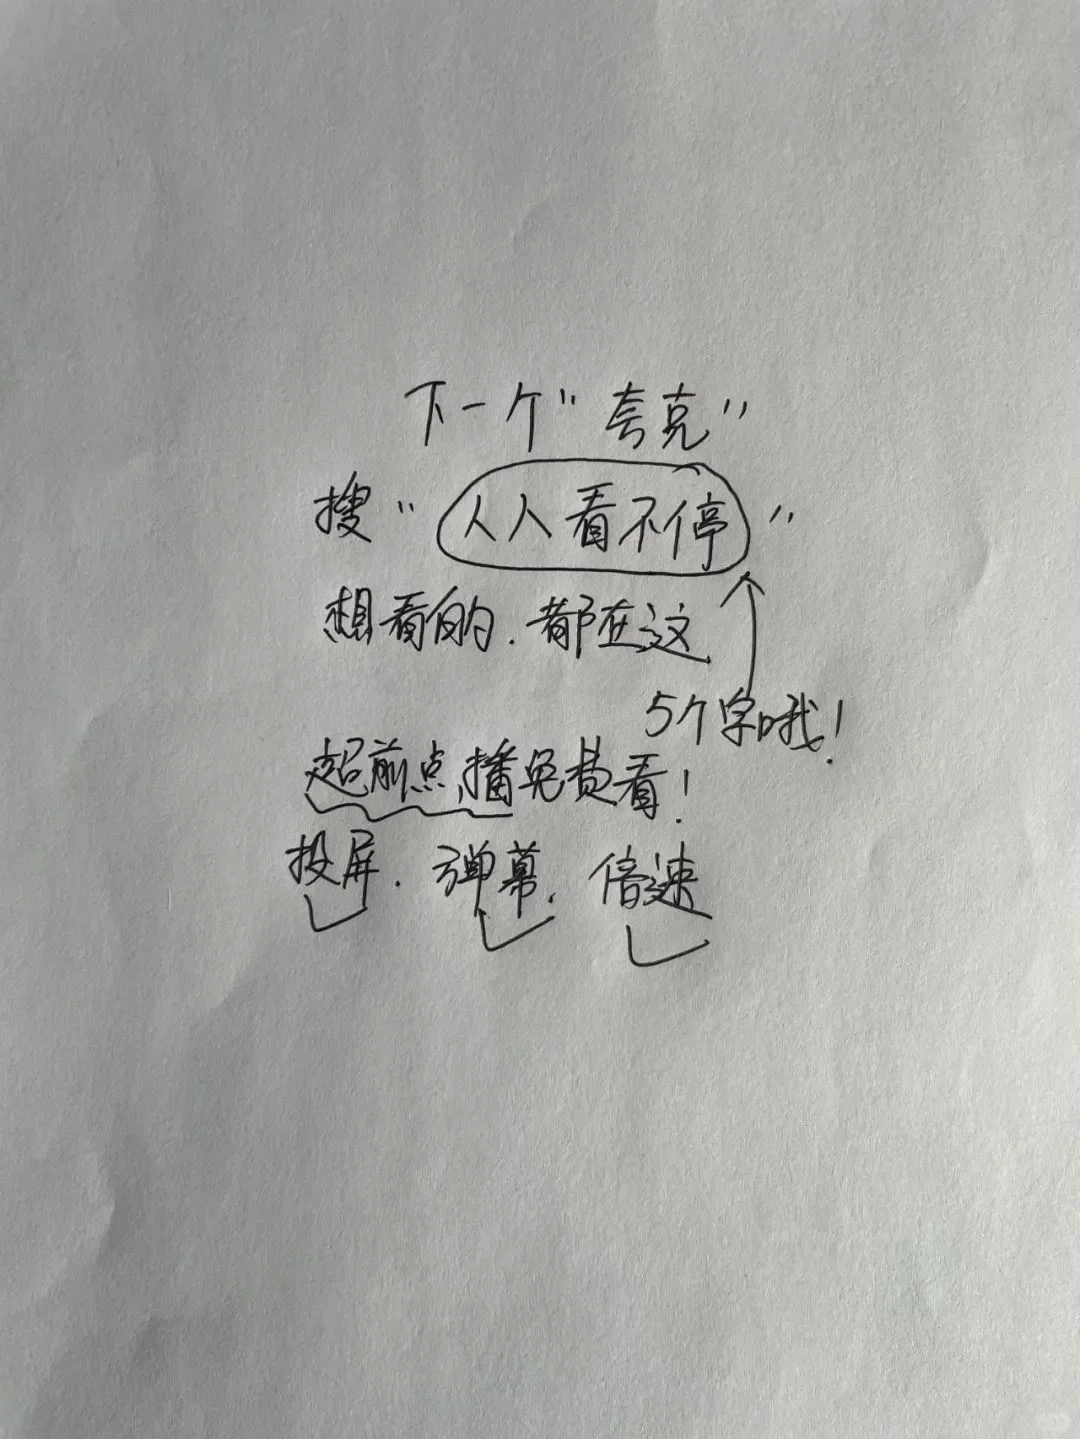 下一个“夸克”
搜“人人看不停”
想看的.都在这
5个字哦!
超前点播免费看!
投屏.弹幕.倍速